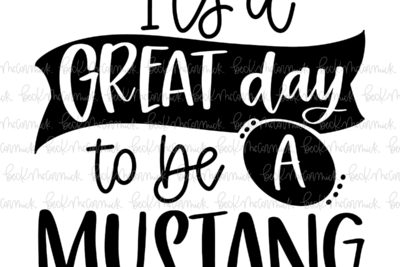 It's a
GREAT day
to be A
MUSTANG